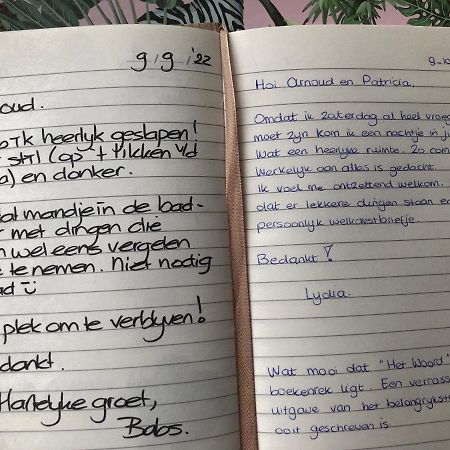 9/9/'22
oud.
ik heerlijk geslapen!
stil (op 't tikken v/d
) en donker.
mandje in de bad-
met dingen die
n wel eens vergelen
te nemen. Niet nodig
ad
plek om te verblyven!
dankt.
Hartelyke groet,
Babs.
Hoi Arnoud en Patricia,
Omdat ik zaterdag al heel vroeg
moet zijn kom ik een nachtje in ju
Wat een heerlijke ruimte. Zo com
Werkelijk aan alles is gedacht.
Ik voel me ontzettend welkom.
dat er lekkere dingen staan e
persoonlijk welkomstbriefje.
Bedankt!
Lydia.
Wat mooi dat "Het Woord"
boekenrek ligt. Een verrass
uitgave van het belangrijkst
ooit geschreven is.